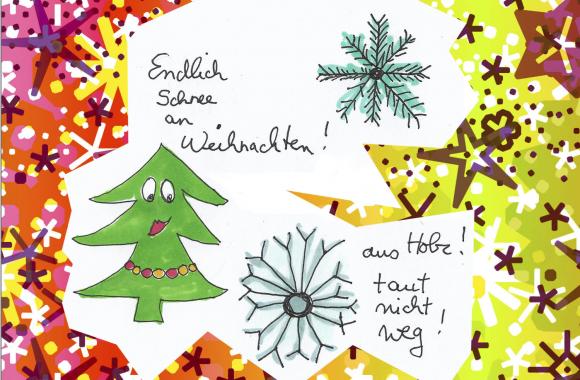 Endlich
Schnee
an
Weihnachten!
aus Holz!
taut
nicht
weg!